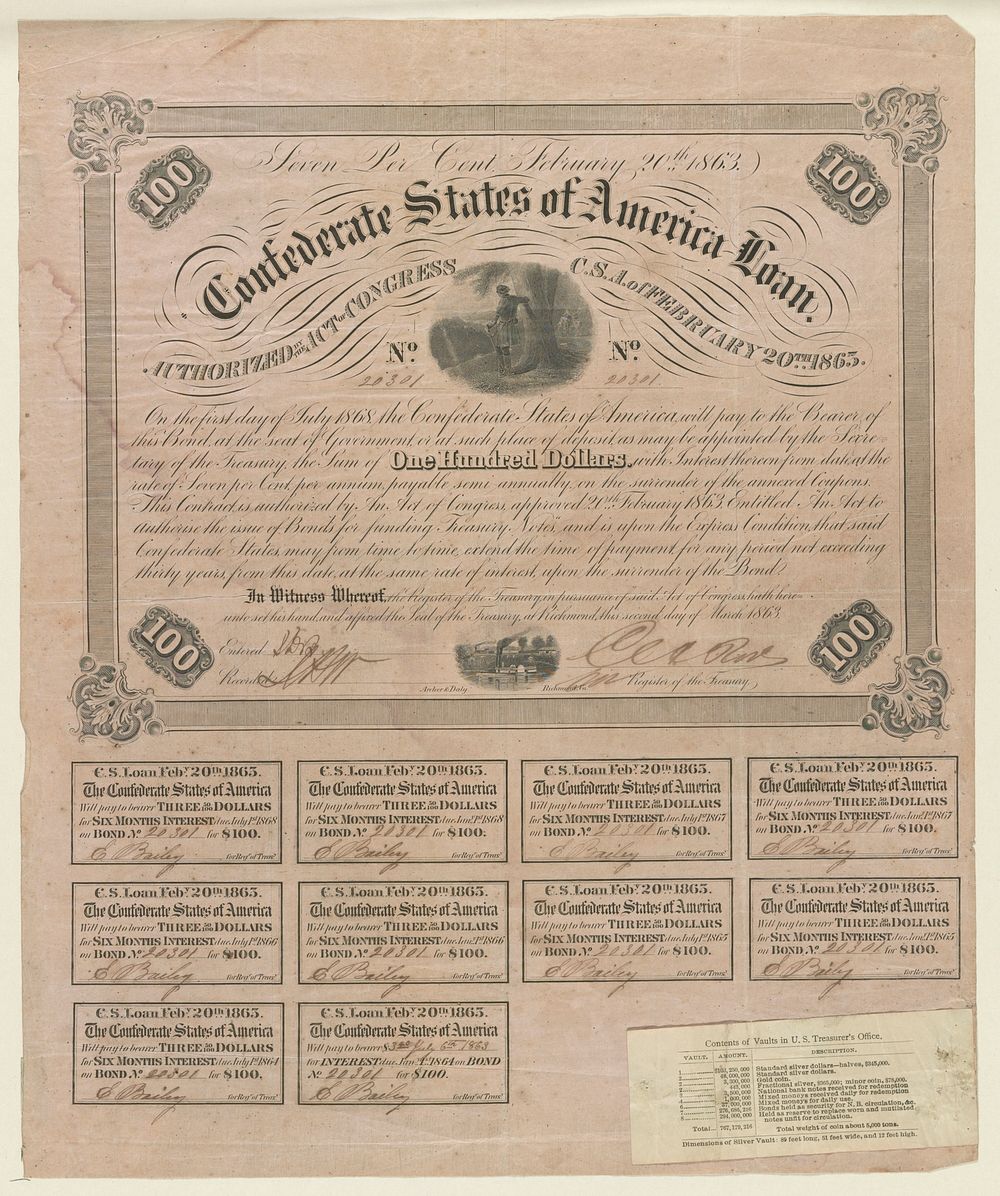 Seven Per Cent. February 20th 1863.)
100
100
Confederate States of America Loan.
AUTHORIZED BY THE ACT OF CONGRESS C.S.A. of FEBRUARY 20TH 1863.
No. No.
20301 20301
On the first day of July 1868, the Confederate States of America, will pay to the Bearer of
this Bond, at the seat of Government, or at such place of deposit, as may be appointed by the Secre-
tary of the Treasury, the Sum of One Hundred Dollars, with Interest thereon from date, at the
rate of Seven per Cent, per annum, payable semi annually, on the surrender of the annexed Coupons.
This Contract is authorized by An Act of Congress, approved 20th February 1863, Entitled "An Act to
authorise the issue of Bonds for funding Treasury Notes", and is upon the Express Condition, that said
Confederate States, may from time to time, extend the time of payment, for any period not exceeding
thirty years, from this date, at the same rate of interest, upon the surrender of the Bond.
In Witness Whereof, the Register of the Treasury, in pursuance of said Act of Congress, hath here-
unto set his hand, and affixed the Seal of the Treasury, at Richmond, this second day of March 1863.
100
100
Entered
Recorded
Archer & Daly Richmond, Va.
Register of the Treasury
C.S. Loan Feby 20th 1863.
The Confederate States of America
Will pay to bearer THREE 50/100 DOLLARS
for SIX MONTHS INTEREST due July 1st 1868
on BOND, No. 20301 for $100.
E Bailey for Reg. of Treasy
C.S. Loan Feby 20th 1863.
The Confederate States of America
Will pay to bearer THREE 50/100 DOLLARS
for SIX MONTHS INTEREST due Jany 1st 1868
on BOND, No. 20301 for $100.
E Bailey for Reg. of Treasy
C.S. Loan Feby 20th 1863.
The Confederate States of America
Will pay to bearer THREE 50/100 DOLLARS
for SIX MONTHS INTEREST due July 1st 1867
on BOND, No. 20301 for $100.
E Bailey for Reg. of Treasy
C.S. Loan Feby 20th 1863.
The Confederate States of America
Will pay to bearer THREE 50/100 DOLLARS
for SIX MONTHS INTEREST due Jany 1st 1867
on BOND, No. 20301 for $100.
E Bailey for Reg. of Treasy
C.S. Loan Feby 20th 1863.
The Confederate States of America
Will pay to bearer THREE 50/100 DOLLARS
for SIX MONTHS INTEREST due July 1st 1866
on BOND, No. 20301 for $100.
E Bailey for Reg. of Treasy
C.S. Loan Feby 20th 1863.
The Confederate States of America
Will pay to bearer THREE 50/100 DOLLARS
for SIX MONTHS INTEREST due Jany 1st 1866
on BOND, No. 20301 for $100.
E Bailey for Reg. of Treasy
C.S. Loan Feby 20th 1863.
The Confederate States of America
Will pay to bearer THREE 50/100 DOLLARS
for SIX MONTHS INTEREST due July 1st 1865
on BOND, No. 20301 for $100.
E Bailey for Reg. of Treasy
C.S. Loan Feby 20th 1863.
The Confederate States of America
Will pay to bearer THREE 50/100 DOLLARS
for SIX MONTHS INTEREST due Jany 1st 1865
on BOND, No. 20301 for $100.
E Bailey for Reg. of Treasy
C.S. Loan Feby 20th 1863.
The Confederate States of America
Will pay to bearer THREE 50/100 DOLLARS
for SIX MONTHS INTEREST due July 1st 1864
on BOND, No. 20301 for $100.
E Bailey for Reg. of Treasy
C.S. Loan Feby 20th 1863.
The Confederate States of America
Will pay to bearer $3 July 6th 1863
for INTEREST due Jany 1st 1864 on BOND
No. 20301 for $100.
E Bailey for Reg. of Treasy
Contents of Vaults in U. S. Treasurer's Office.
VAULT. AMOUNT. DESCRIPTION.
1 Standard silver dollars—halves, $345,000.
2 48,000,000 Standard silver dollars.
3 3,300,000 Gold coin.
Fractional silver, $365,000; minor coin, $78,000.
National bank notes received for redemption
Mixed moneys received daily for redemption
Mixed moneys for daily use.
276,686,216 Bonds held as security for N. B. circulation, &c.
8 294,000,000 Held as reserve to replace worn and mutilated
notes unfit for circulation.
Total 767,179,216 Total weight of coin about 5,000 tons.
Dimensions of Silver Vault: 89 feet long, 51 feet wide, and 12 feet high.